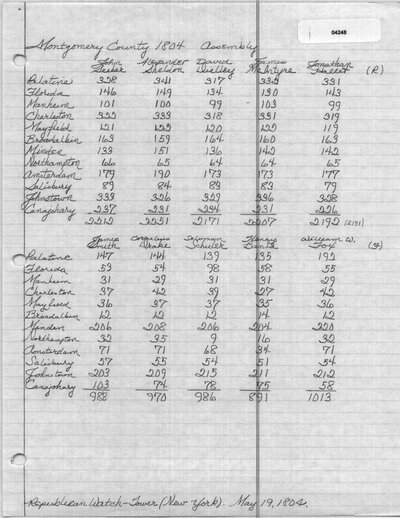 04248
Montgomery County 1804 Assembly
John Alexander David James Jonathan
Sheldon McIntyre Hallet (R)
Palatine 328 341 317 332 331
Florida 146 149 134 130 143
Manheim 101 100 99 103 99
Charleston 322 333 318 331 319
Mayfield 121 122 120 122 119
Broadalbin 163 159 164 160 163
Minden 133 151 136 142 142
Northampton 66 65 64 64 65
Amsterdam 179 190 173 173 177
Salisbury 89 84 83 83 79
Johnstown 333 326 329 336 328
Canajohary 237 231 234 231 226
2212 2251 2171 2207 2192 (2191)
James Cornelius Solomon Henry William W.
Smith Drake Schuler Fox (F)
Palatine 147 144 139 135 192
Florida 53 54 98 58 55
Manheim 31 29 31 31 29
Charleston 37 42 39 27 42
Mayfield 36 37 37 35 36
Broadalbin 12 12 12 14 12
Minden 206 208 206 204 220
Northampton 32 35 9 16 32
Amsterdam 71 71 68 34 71
Salisbury 57 55 54 51 54
Johnstown 203 209 215 211 212
Canajohary 103 74 78 75 58
988 970 986 891 1013
Republican Watch-Tower (New York). May 19, 1804.